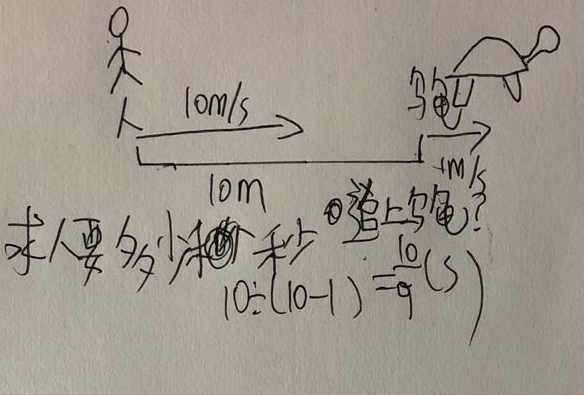 10m/s
乌龟
1m/s
10m
求人要多少秒追上乌龟?
10÷(10-1)=10/9(s)